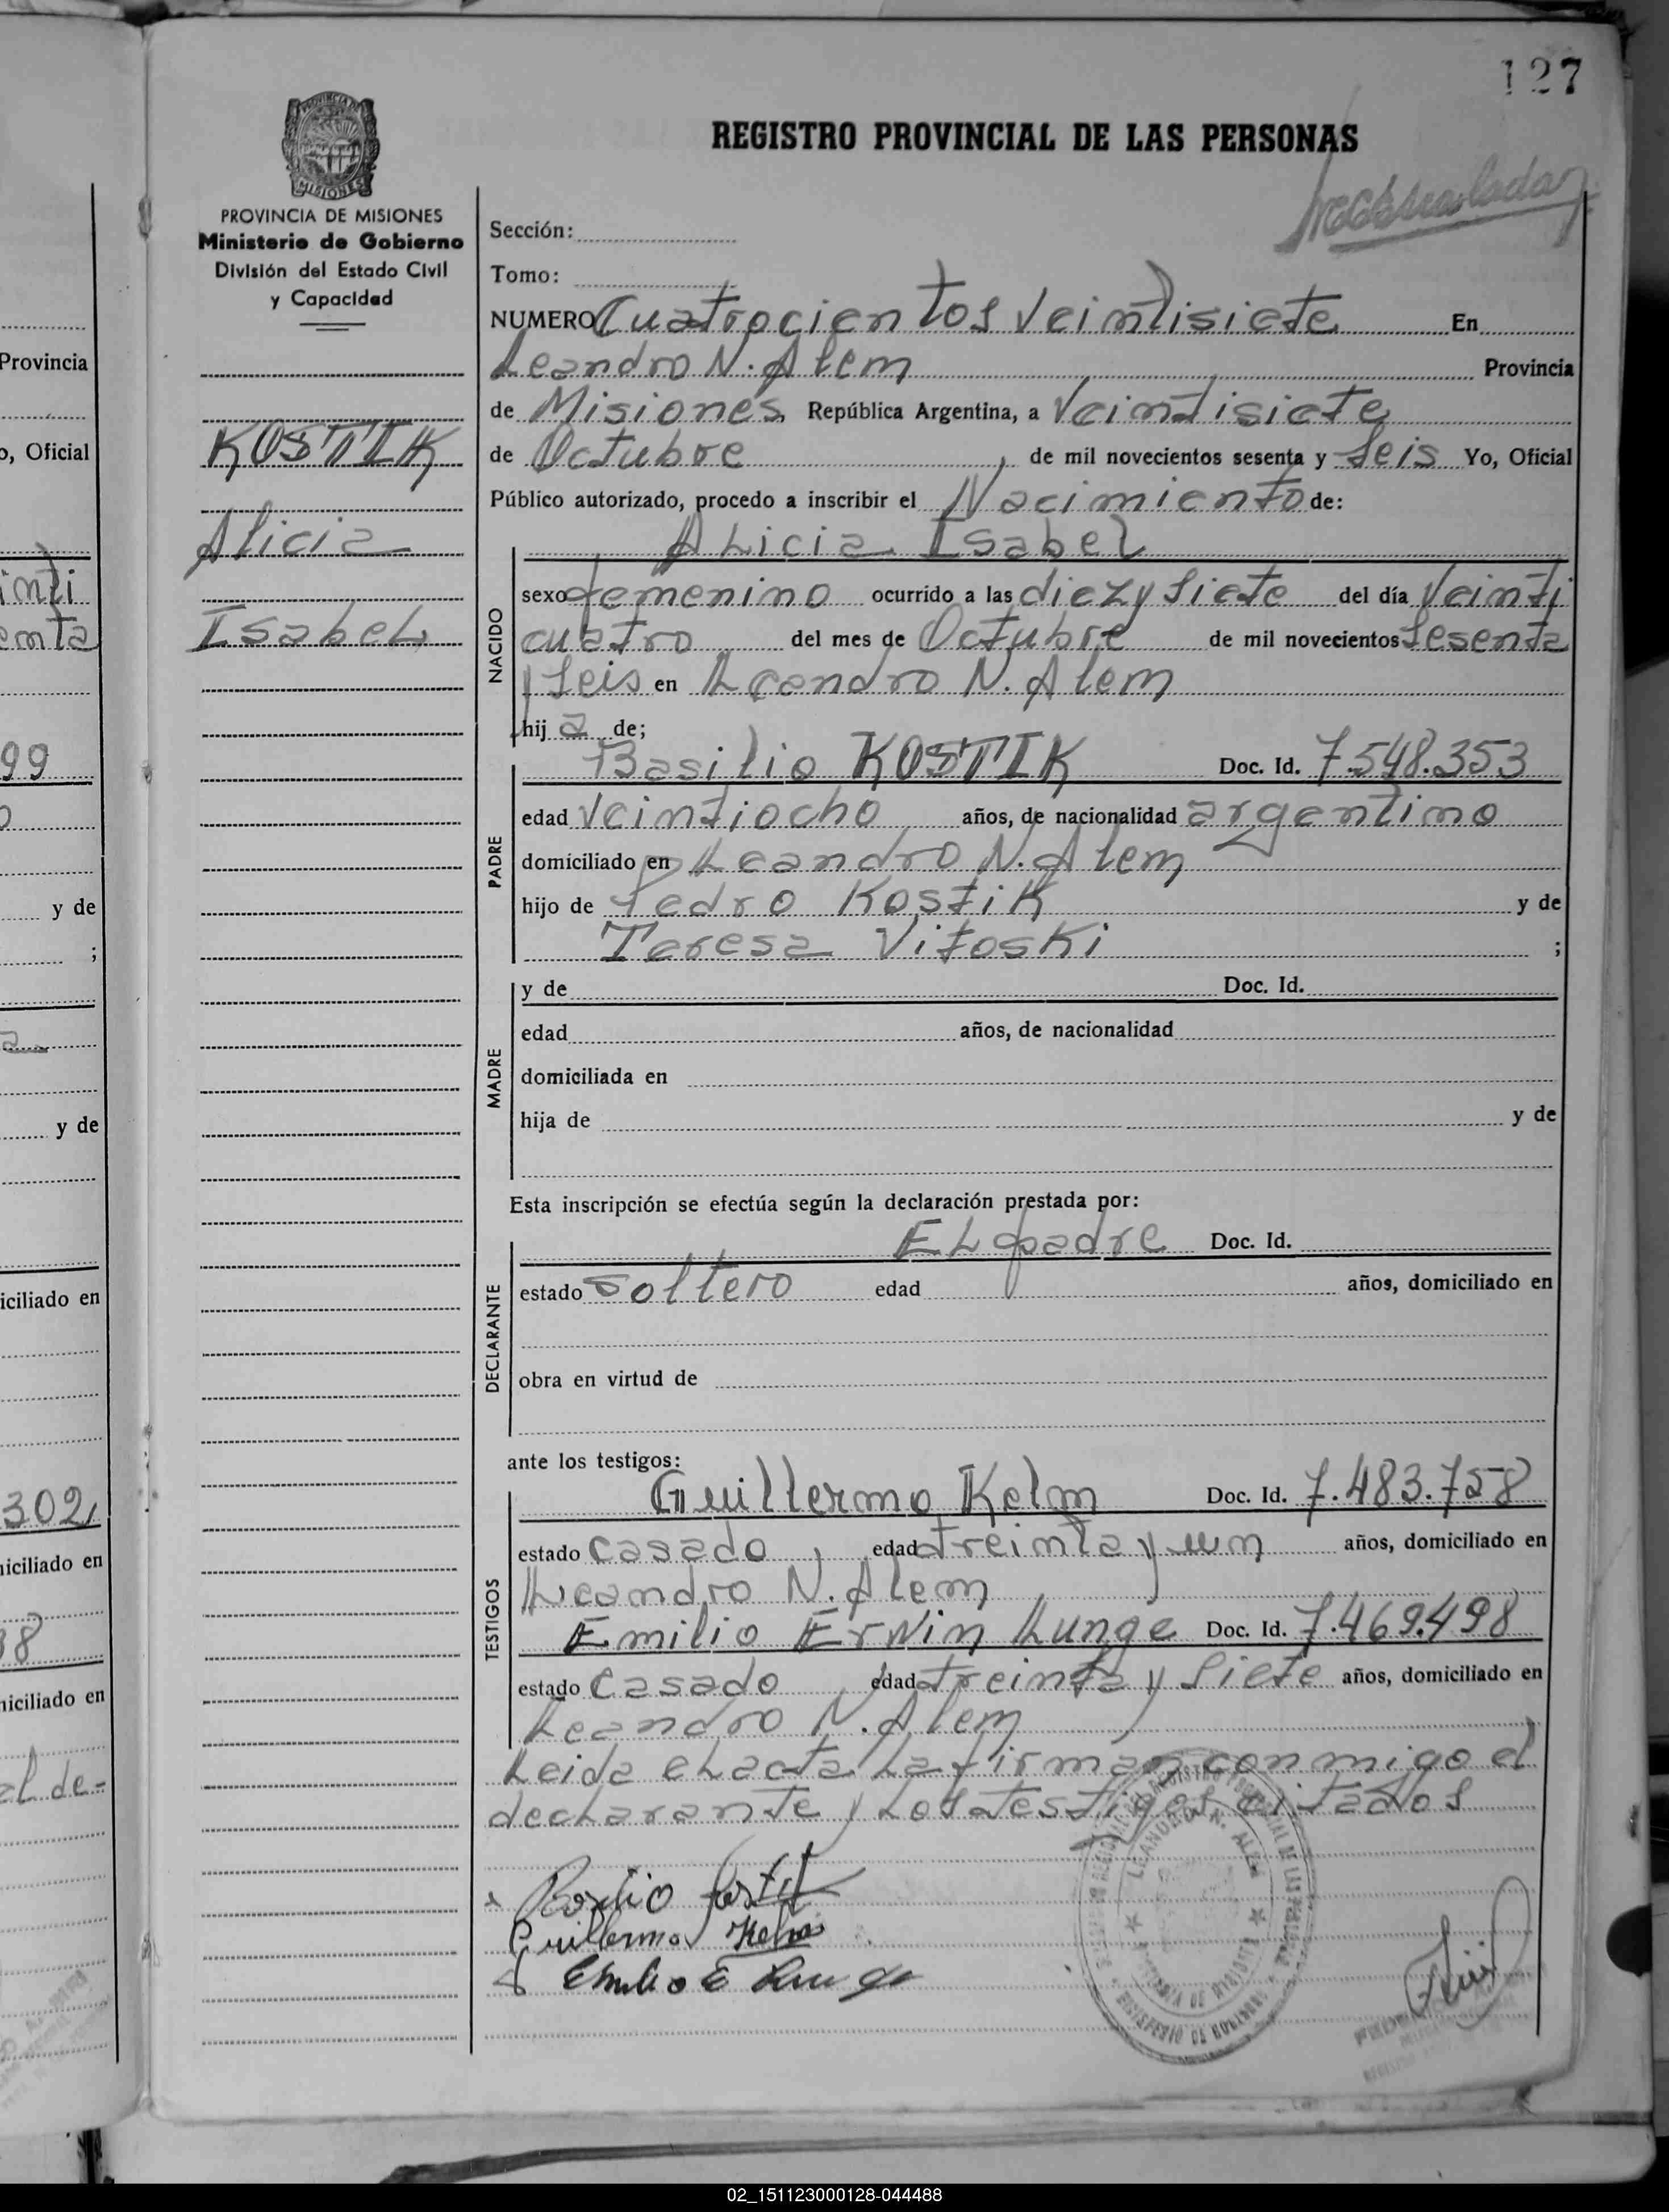 127
REGISTRO PROVINCIAL DE LAS PERSONAS
MISIONES
PROVINCIA DE MISIONES
Ministerio de Gobierno
División del Estado Civil
y Capacidad
KOSTIK
Alicia
Isabel
Sección:
Tomo:
NUMERO Cuatrocientos Veintisiete En
Leandro N. Alem Provincia
de Misiones República Argentina, a Veintisiete
de Octubre, de mil novecientos sesenta y Seis Yo, Oficial
Público autorizado, procedo a inscribir el Nacimiento de:
Alicia Isabel
NACIDO
sexo femenino ocurrido a las diez y siete del día Veinti
cuatro del mes de Octubre de mil novecientos sesenta
y seis en Leandro N. Alem
hij a de;
PADRE
Basilio KOSTIK Doc. Id. 7.548.353
edad Veintiocho años, de nacionalidad argentino
domiciliado en Leandro N. Alem
hijo de Pedro Kostik y de
Teresa Vitoski ;
MADRE
y de Doc. Id.
edad años, de nacionalidad
domiciliada en
hija de y de
Esta inscripción se efectúa según la declaración prestada por:
DECLARANTE
El padre Doc. Id.
estado soltero edad años, domiciliado en
obra en virtud de
ante los testigos:
TESTIGOS
Guillermo Kelm Doc. Id. 7.483.758
estado casado, edad treinta y un años, domiciliado en
Leandro N. Alem
Emilio Erwin Lunge Doc. Id. 7.469.498
estado casado edad treinta y siete años, domiciliado en
Leandro N. Alem
Leida el acta la firman conmigo el
declarante y los testigos citados
Basilio Kostik
Guillermo Kelm
Emilio E Lunge
LEANDRO N. ALEM
MINISTERIO DE GOBIERNO
Provincia
o, Oficial
inti
enta
99
y de
;
y de
iciliado en
302
niciliado en
8
niciliado en
al de-
02_151123000128-044488